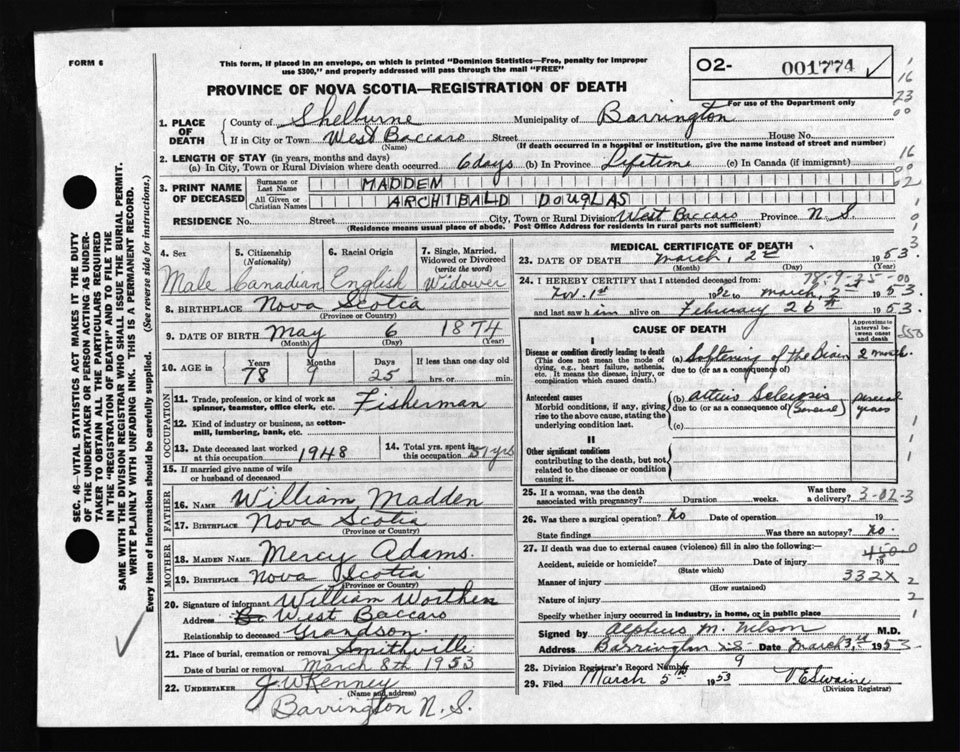 FORM 6
This form, if placed in an envelope, on which is printed "Dominion Statistics—Free, penalty for improper
use $300," and properly addressed will pass through the mail "FREE"
O2- 001774 ✓
For use of the Department only
PROVINCE OF NOVA SCOTIA—REGISTRATION OF DEATH
1. PLACE OF DEATH
County of Shelburne Municipality of Barrington
If in City or Town West Baccaro Street House No.
(Name) (If death occurred in a hospital or institution, give the name instead of street and number)
2. LENGTH OF STAY (in years, months and days)
(a) In City, Town or Rural Division where death occurred 6 days (b) In Province Lifetime (c) In Canada (if immigrant)
3. PRINT NAME OF DECEASED
Surname or Last Name MADDEN
All Given or Christian Names ARCHIBALD DOUGLAS
RESIDENCE No. Street City, Town or Rural Division West Baccaro Province N. S.
(Residence means usual place of abode. Post Office Address for residents in rural parts not sufficient)
4. Sex
Male
5. Citizenship
(Nationality)
Canadian
6. Racial Origin
English
7. Single, Married,
Widowed or Divorced
(write the word)
Widower
8. BIRTHPLACE Nova Scotia
(Province or Country)
9. DATE OF BIRTH May 6 1874
(Month) (Day) (Year)
10. AGE in Years Months Days If less than one day old
78 9 25 hrs. or min.
OCCUPATION
11. Trade, profession, or kind of work as
spinner, teamster, office clerk, etc. Fisherman
12. Kind of industry or business, as cotton-
mill, lumbering, bank, etc.
13. Date deceased last worked
at this occupation 1948
14. Total yrs. spent in
this occupation 57 yrs
15. If married give name of wife
or husband of deceased
FATHER
16. NAME William Madden
17. BIRTHPLACE Nova Scotia
(Province or Country)
MOTHER
18. MAIDEN NAME Mercy Adams.
19. BIRTHPLACE Nova Scotia
(Province or Country)
20. Signature of informant William Worthen
Address West Baccaro
Relationship to deceased Grandson.
21. Place of burial, cremation or removal Smithville
Date of burial or removal March 8th 1953
22. UNDERTAKER J. W Kenney
(Name and address)
Barrington N. S.
MEDICAL CERTIFICATE OF DEATH
23. DATE OF DEATH March, 2nd 1953
(Month) (Day) (Year)
78-9-25-00
24. I HEREBY CERTIFY that I attended deceased from:
Nov. 1st 1952 to March, 2nd 1953
and last saw him alive on February 26th 1953.
CAUSE OF DEATH
Approximate
interval be-
tween onset
and death
I
Disease or condition directly leading to death
(This does not mean the mode of
dying, e.g., heart failure, asthenia,
etc. It means the disease, injury, or
complication which caused death.)
(a) Softening of the Brain 2 months.
due to (or as a consequence of)
Antecedent causes
Morbid conditions, if any, giving
rise to the above cause, stating the
underlying condition last.
(b) Arterio Sclerosis several years
due to (or as a consequence of) (General)
(c)
II
Other significant conditions
contributing to the death, but not
related to the disease or condition
causing it.
25. If a woman, was the death
associated with pregnancy? Duration weeks. Was there
a delivery? 3-02-3
26. Was there a surgical operation? No Date of operation 19
State findings Was there an autopsy? No.
27. If death was due to external causes (violence) fill in also the following:—
4500
Accident, suicide or homicide? Date of injury 19
(State which)
332X
Manner of injury
(How sustained)
Nature of injury
Specify whether injury occurred in industry, in home, or in public place
Signed by Alpheus M. Wilson M.D.
Address Barrington NS Date March 3rd 1953
28. Division Registrar's Record Number 9
29. Filed March 5th 1953 V E Swaine
(Division Registrar)
SEC. 46—VITAL STATISTICS ACT MAKES IT THE DUTY
OF THE UNDERTAKER OR PERSON ACTING AS UNDER-
TAKER TO OBTAIN ALL THE PARTICULARS REQUIRED
IN THE "REGISTRATION OF DEATH" AND TO FILE THE
SAME WITH THE DIVISION REGISTRAR WHO SHALL ISSUE THE BURIAL PERMIT.
WRITE PLAINLY WITH UNFADING INK. THIS IS A PERMANENT RECORD.
Every item of information should be carefully supplied. (See reverse side for instructions.)